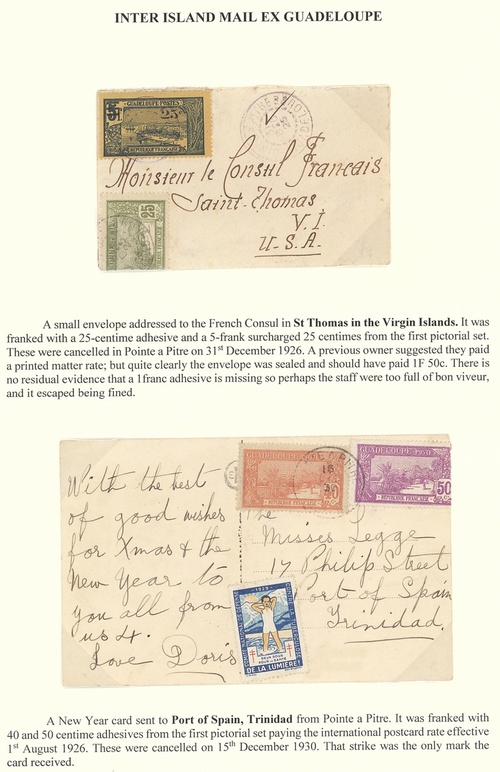 INTER ISLAND MAIL EX GUADELOUPE
GUADELOUPE POSTES
25c
RÉPUBLIQUE FRANÇAISE
Monsieur le Consul Français
Saint-Thomas
V.I.
U.S.A.
25
A small envelope addressed to the French Consul in St Thomas in the Virgin Islands. It was
franked with a 25-centime adhesive and a 5-frank surcharged 25 centimes from the first pictorial set.
These were cancelled in Pointe a Pitre on 31st December 1926. A previous owner suggested they paid
a printed matter rate; but quite clearly the envelope was sealed and should have paid 1F 50c. There is
no residual evidence that a 1franc adhesive is missing so perhaps the staff were too full of bon viveur,
and it escaped being fined.
GUADELOUPE
RÉPUBLIQUE FRANÇAISE
16
30
GUADELOUPE
50
RÉPUBLIQUE FRANÇAISE
With the best
of good wishes
for Xmas & the
New Year to
you all from
us 4.
Love Doris
The
Misses Legge
17 Philip Street
Port of Spain
Trinidad.
1929
DE LA LUMIÈRE!
A New Year card sent to Port of Spain, Trinidad from Pointe a Pitre. It was franked with
40 and 50 centime adhesives from the first pictorial set paying the international postcard rate effective
1st August 1926. These were cancelled on 15th December 1930. That strike was the only mark the
card received.